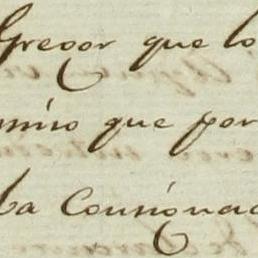 Gregor que lo
mino que por
ta Consignac